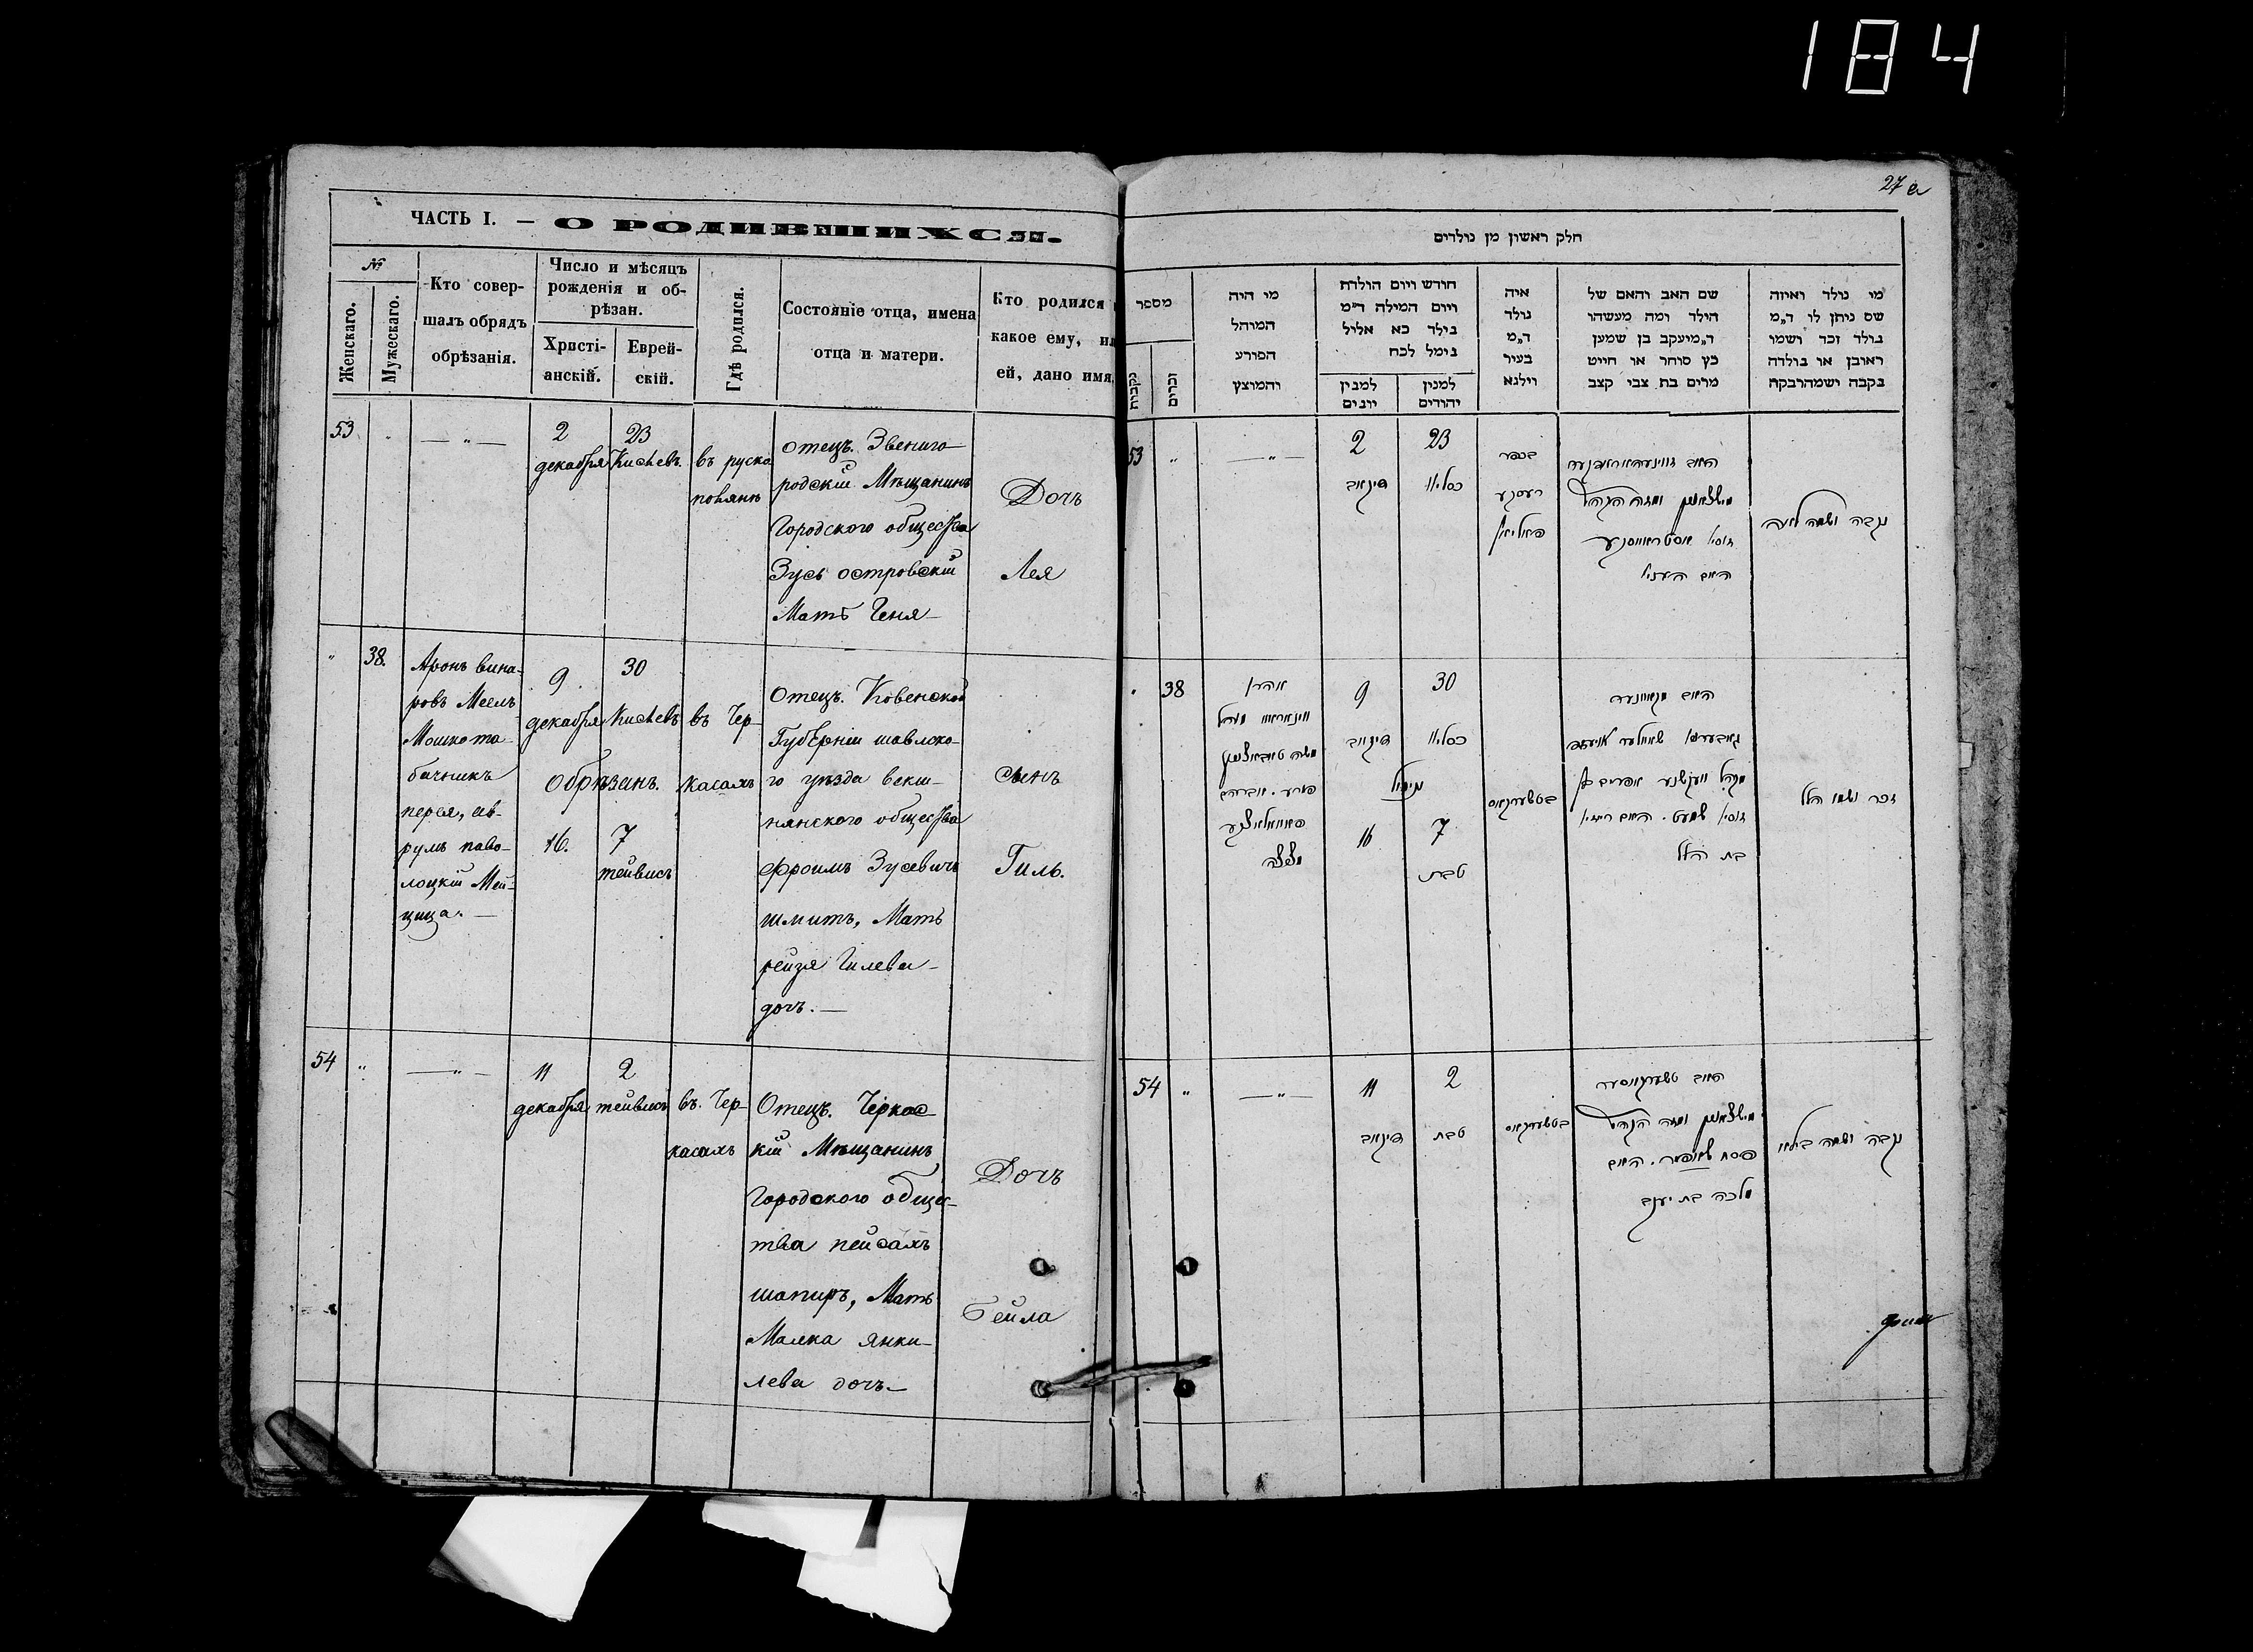 184
27
ЧАСТЬ I. — О РОДИВШИХСЯ.
№
Женскаго.
Мужескаго.
Кто совер-
шалъ обрядъ
обрѣзанія.
Число и мѣсяцъ
рожденія и об-
рѣзан.
Христі-
анскій.
Еврей-
скій.
Гдѣ родился.
Состояніе отца, имена
отца и матери.
Кто родился
какое ему, ил
ей, дано имя.
53
2
декабря
23
Кислевъ.
въ руско
поляне
отецъ. Звениго
родскій Мѣщанинъ
Городского общества
Зусь островскій
Мать Геня
Дочь
Лея
38.
Аронъ вина-
ровъ Меелъ
Мошко та-
бачникъ
перея, ав-
румъ паво-
лоцкій Мей-
цица.
9
декабря
30
Кислевъ
Обрѣзанъ.
16.
7
тейвисъ
въ Чер-
касахъ
отецъ. Ковенской
Губерніи шавлско-
го уѣзда векш-
нянского общества
Фроимъ Зусевичъ
шмитъ, Мать
рейзя Гилева
дочь.
сынъ
Гиль.
54
11
декабря
2
тейвисъ
въ. Чер-
касахъ
Отецъ. Черкас
кій Мѣщанинъ
Городского общес-
тва пейсахъ
шапиръ, Мать
Малка янки-
лева дочь
Дочь
Бейла
חלק ראשון מן נולדים
מספר
נקבות
זכרים
מי היה
המוהל
הפורע
והמוצץ
חודש ויום הולדת
ויום המילה ד״מ
נילד כא אליל
נימל לכח
למנין
יונים
למנין
יהודים
איה
נולד
ד״מ
בעיר
וילנא
שם האב והאם של
הילד ומה מעשהו
ד״מיעקב בן שמען
כץ סוחר או חייט
מרים בת צבי קצב
מי נולד ואיזה
שם ניתן לו ד״מ
נולד זכר ושמו
ראובן או נולדה
נקבה ושמהרבקה
53
2
דיקאב
23
כסליו
בכפר
נקבה ושמה לאה
38
אהרן
9
דיקאב
30
כסליו
נימול
16
7
טבת
בטשערקאס
בת הלל
זכר ושמו הלל
54
11
דיקאב
2
טבת
בטשערקאס
האב טשערקאסער
מלכה בת יענקב
נקבה ושמה ביילא